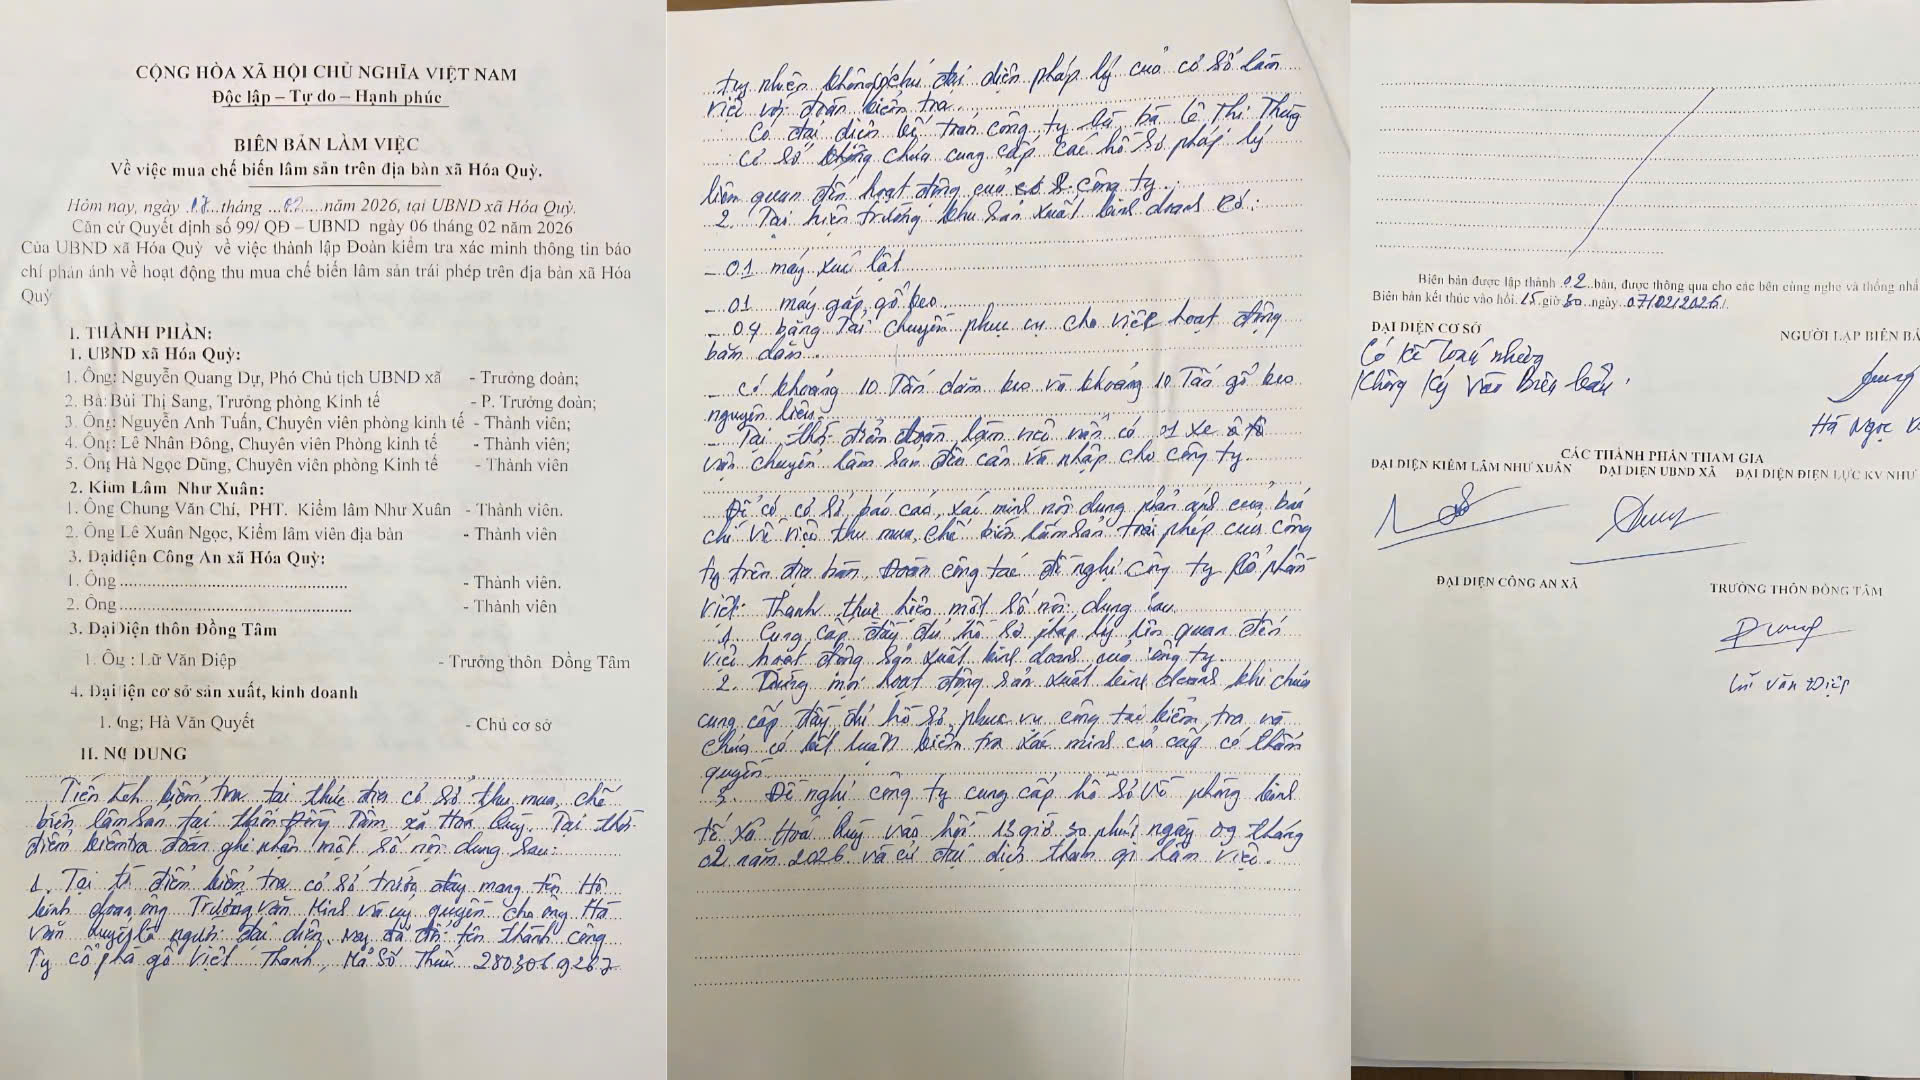 CỘNG HÒA XÃ HỘI CHỦ NGHĨA VIỆT NAM
Độc lập – Tự do – Hạnh phúc
BIÊN BẢN LÀM VIỆC
Về việc mua chế biến lâm sản trên địa bàn xã Hóa Quỳ.
Hôm nay, ngày 07 tháng 02 năm 2026, tại UBND xã Hóa Quỳ.
Căn cứ Quyết định số 99/ QĐ – UBND ngày 06 tháng 02 năm 2026
Của UBND xã Hóa Quỳ về việc thành lập Đoàn kiểm tra xác minh thông tin báo
chí phản ánh về hoạt động thu mua chế biến lâm sản trái phép trên địa bàn xã Hóa
Quỳ
I. THÀNH PHẦN:
1. UBND xã Hóa Quỳ:
1. Ông: Nguyễn Quang Dự, Phó Chủ tịch UBND xã - Trưởng đoàn;
2. Bà: Bùi Thị Sang, Trưởng phòng Kinh tế - P. Trưởng đoàn;
3. Ông: Nguyễn Anh Tuấn, Chuyên viên phòng kinh tế - Thành viên;
4. Ông: Lê Nhân Đông, Chuyên viên Phòng kinh tế - Thành viên;
5. Ông Hà Ngọc Dũng, Chuyên viên phòng Kinh tế - Thành viên
2. Kiểm Lâm Như Xuân:
1. Ông Chung Văn Chí, PHT. Kiểm lâm Như Xuân - Thành viên.
2. Ông Lê Xuân Ngọc, Kiểm lâm viên địa bàn - Thành viên
3. Đại diện Công An xã Hóa Quỳ:
1. Ông - Thành viên.
2. Ông - Thành viên
3. Đại diện thôn Đồng Tâm
1. Ông : Lữ Văn Diệp - Trưởng thôn Đồng Tâm
4. Đại diện cơ sở sản xuất, kinh doanh
1. Ông; Hà Văn Quyết - Chủ cơ sở
II. NỘI DUNG
Tiến hành kiểm tra tại thực địa cơ sở thu mua, chế
biến lâm sản tại thôn Đồng Tâm, xã Hoá Quỳ. Tại thời
điểm kiểm tra đoàn ghi nhận một số nội dung sau:
1. Tại thời điểm kiểm tra cơ sở trước đây mang tên Hộ
kinh doanh ông Trương Văn Minh và uỷ quyền cho ông Hà
Văn Quyết là người đại diện. Nay đã đổi tên thành công
Ty cổ phần gỗ Việt Thanh, Mã Số Thuế 280306 9287
Tuy nhiên không phải đại diện pháp lý của cơ sở làm
việc với đoàn kiểm tra.
Có đại diện kế toán công ty là bà Lê Thị Thùy
Cơ sở chưa cung cấp các hồ sơ pháp lý
liên quan đến hoạt động của công ty.
2. Tại hiện trường khu sản xuất kinh doanh có:
- 01 máy xúc lật
- 01 máy gắp gỗ keo.
- 04 băng tải chuyền phục vụ cho việc hoạt động
băm dăm.
- Có khoảng 10 Tấn dăm keo và khoảng 10 Tấn gỗ keo
nguyên liệu.
- Tại thời điểm đoàn làm việc vẫn có 01 xe ô tô
vận chuyển lâm sản đến cân và nhập cho công ty.
Để có cơ sở báo cáo, xác minh nội dung phản ánh của báo
chí về việc thu mua, chế biến lâm sản trái phép của công
ty trên địa bàn, Đoàn công tác đề nghị công ty cổ phần
Việt Thanh thực hiện một số nội dung sau.
1. Cung cấp đầy đủ hồ sơ pháp lý liên quan đến
việc hoạt động sản xuất kinh doanh của công ty.
2. Dừng mọi hoạt động sản xuất kinh doanh khi chưa
cung cấp đầy đủ hồ sơ phục vụ công tác kiểm tra và
chưa có kết luận kiểm tra xác minh của cấp có thẩm
quyền.
3. Đề nghị công ty cung cấp hồ sơ về phòng kinh
tế xã Hoá Quỳ vào hồi 13 giờ 30 phút ngày 09 tháng
02 năm 2026 và cử đại diện tham gia làm việc.
Biên bản được lập thành 02 bản, được thông qua cho các bên cùng nghe và thống nhất
Biên bản kết thúc vào hồi 15 giờ 30 ngày 07/02/2026.
ĐẠI DIỆN CƠ SỞ
NGƯỜI LẬP BIÊN BẢ
Có kế toán nhưng
Không Ký Vào Biên bản.
Hà Ngọc
CÁC THÀNH PHẦN THAM GIA
ĐẠI DIỆN KIỂM LÂM NHƯ XUÂN ĐẠI DIỆN UBND XÃ ĐẠI DIỆN ĐIỆN LỰC KV NHƯ
ĐẠI DIỆN CÔNG AN XÃ
TRƯỞNG THÔN ĐỒNG TÂM
Lữ Văn Diệp